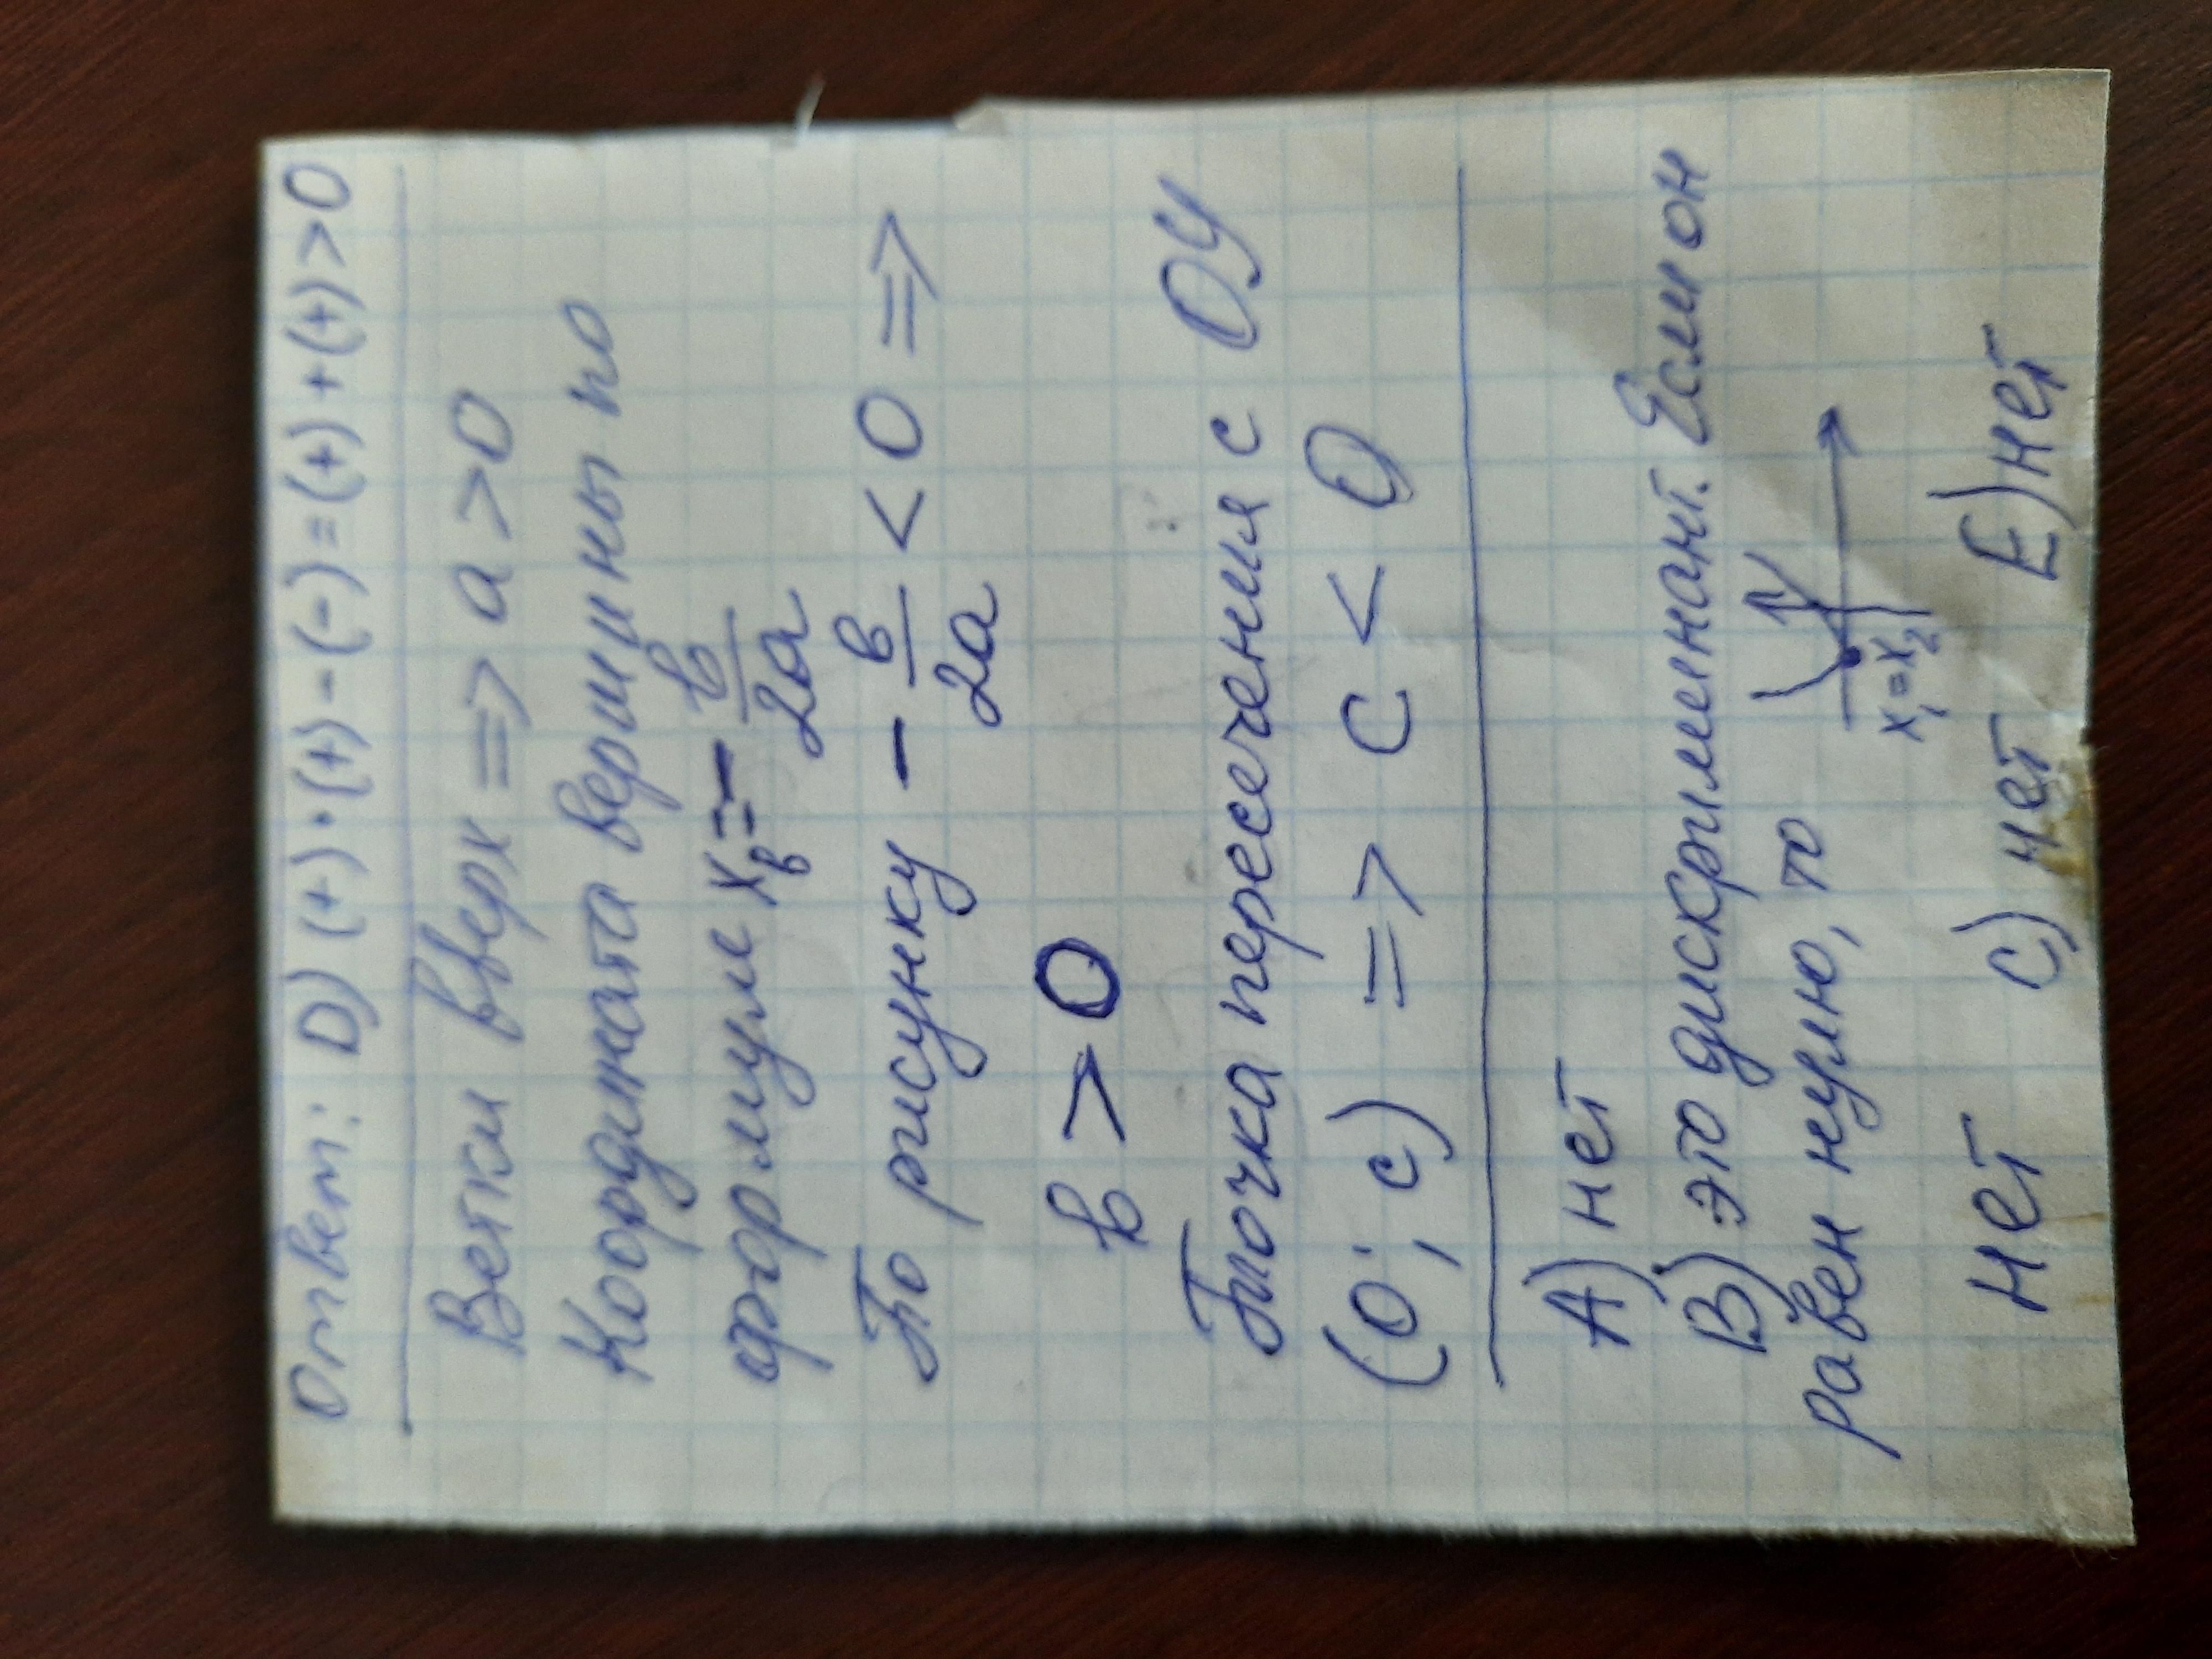 Ответ: D) (+)·(+)-(-)=(+)+(+)>0
Ветки вверх => a>0
Координата вершины по
формуле xв = - в/2a
По рисунку - в/2a < 0 =>
в > 0
Точка пересечения с ОУ
(0; c) => c < 0
A) нет
B) это дискриминант. Если он
равен нулю, то
x₁=x₂
нет C) нет E) нет